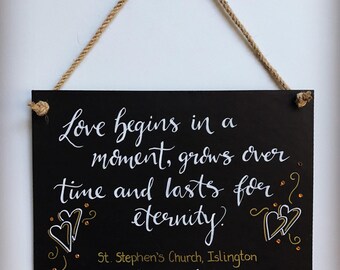 Love begins in a
moment, grows over
time and lasts for
eternity.
St Stephen's Church, Islington